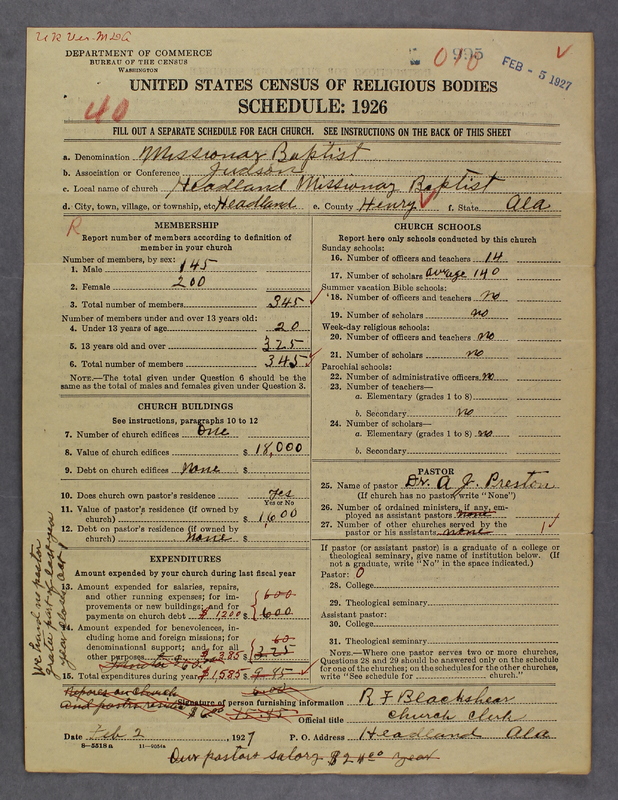 DEPARTMENT OF COMMERCE
BUREAU OF THE CENSUS
WASHINGTON
995
010
FEB - 5 1927
UNITED STATES CENSUS OF RELIGIOUS BODIES
SCHEDULE: 1926
40
FILL OUT A SEPARATE SCHEDULE FOR EACH CHURCH. SEE INSTRUCTIONS ON THE BACK OF THIS SHEET
a. Denomination Missionay Baptist
b. Association or Conference Judson
c. Local name of church Headland Missionay Baptist
d. City, town, village, or township, etc. Headland e. County Henry f. State Ala
R
MEMBERSHIP
Report number of members according to definition of
member in your church
Number of members, by sex:
1. Male 145
2. Female 200
3. Total number of members 345
Number of members under and over 13 years old:
4. Under 13 years of age 20
5. 13 years old and over 325
6. Total number of members 345
NOTE.—The total given under Question 6 should be the
same as the total of males and females given under Question 3.
CHURCH BUILDINGS
See instructions, paragraphs 10 to 12
7. Number of church edifices One
8. Value of church edifices $ 18,000
9. Debt on church edifices None $
10. Does church own pastor's residence Yes
Yes or No
11. Value of pastor's residence (if owned by
church) $ 1,600
12. Debt on pastor's residence (if owned by
church) None $
EXPENDITURES
Amount expended by your church during last fiscal year
13. Amount expended for salaries, repairs,
and other running expenses; for im- 600
provements or new buildings; and for
payments on church debt $ 1200 $ 600
14. Amount expended for benevolences, in-
cluding home and foreign missions; for 60
denominational support; and for all
other purposes $ 385 $ 325
15. Total expenditures during year $ 1585 $
Repairs on church
and pastor
CHURCH SCHOOLS
Report here only schools conducted by this church
Sunday schools:
16. Number of officers and teachers 14
17. Number of scholars average 140
Summer vacation Bible schools:
18. Number of officers and teachers no
19. Number of scholars no
Week-day religious schools:
20. Number of officers and teachers no
21. Number of scholars no
Parochial schools:
22. Number of administrative officers no
23. Number of teachers—
a. Elementary (grades 1 to 8)
b. Secondary no
24. Number of scholars—
a. Elementary (grades 1 to 8) no
b. Secondary
PASTOR
25. Name of pastor Dr. A J. Preston
(If church has no pastor, write "None")
26. Number of ordained ministers, if any, em-
ployed as assistant pastors none
27. Number of other churches served by the
pastor or his assistants none 1
If pastor (or assistant pastor) is a graduate of a college or
theological seminary, give name of institution below. (If
not a graduate, write "No" in the space indicated.)
Pastor: O
28. College
29. Theological seminary
Assistant pastor:
30. College
31. Theological seminary
NOTE.—Where one pastor serves two or more churches,
Questions 28 and 29 should be answered only on the schedule
for one of the churches; on the schedules for other churches,
write "See schedule for church."
We had no pastor
Signature of person furnishing information R F Blackshear
Official title church clerk
Date Feb 2, 1927 P. O. Address Headland Ala
8—5518a 11—9054a
Our pastors salary $2400 year